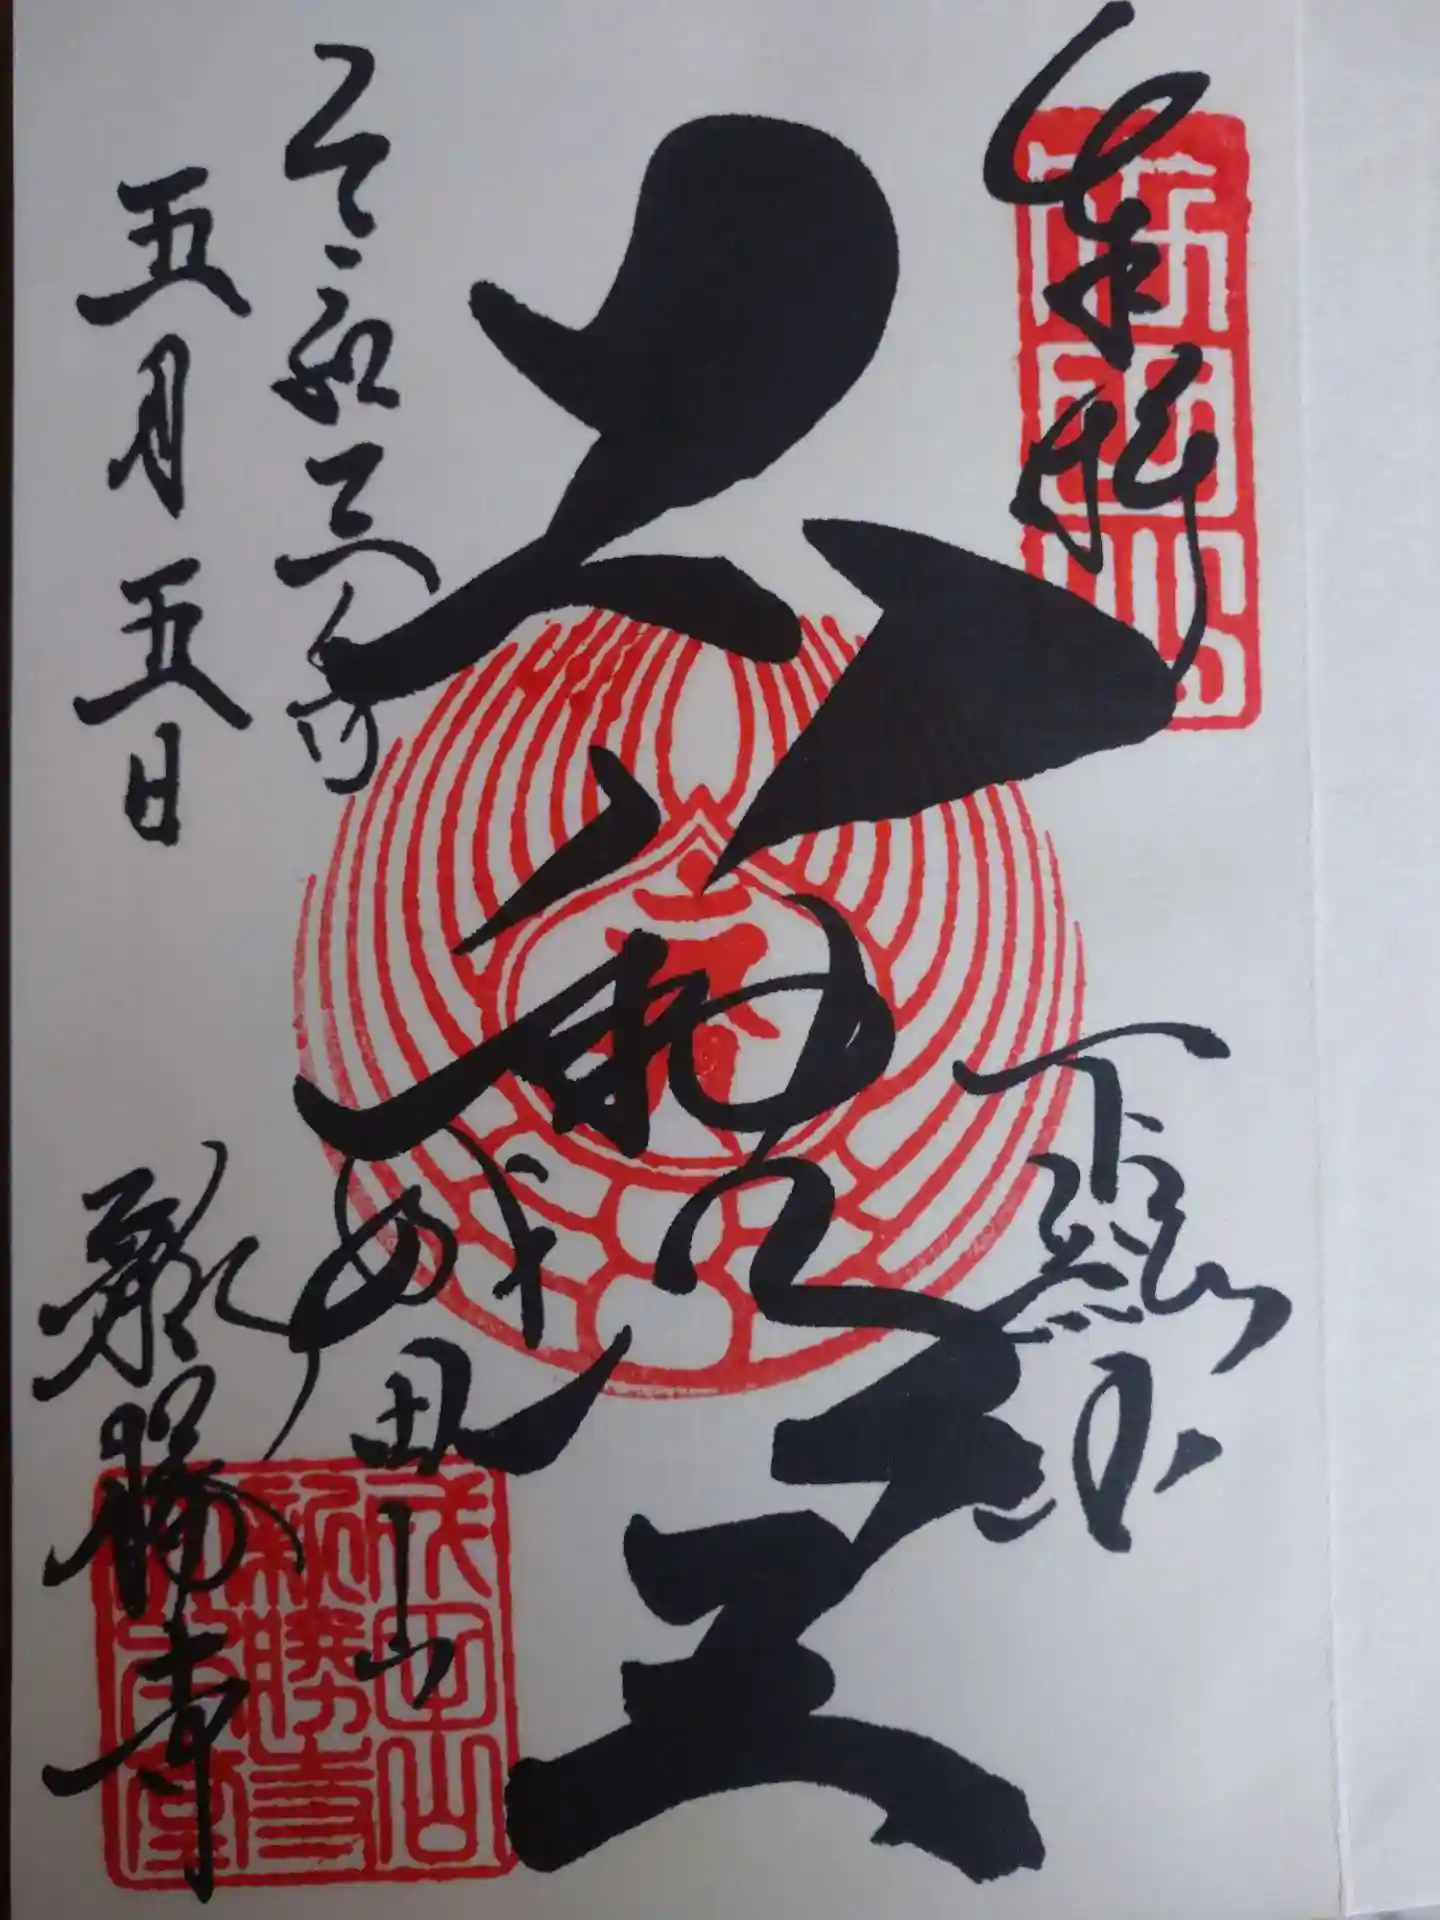 奉拝
下総國
不動明王
令和三年
五月五日
成田山
新勝寺
成田山
新勝寺